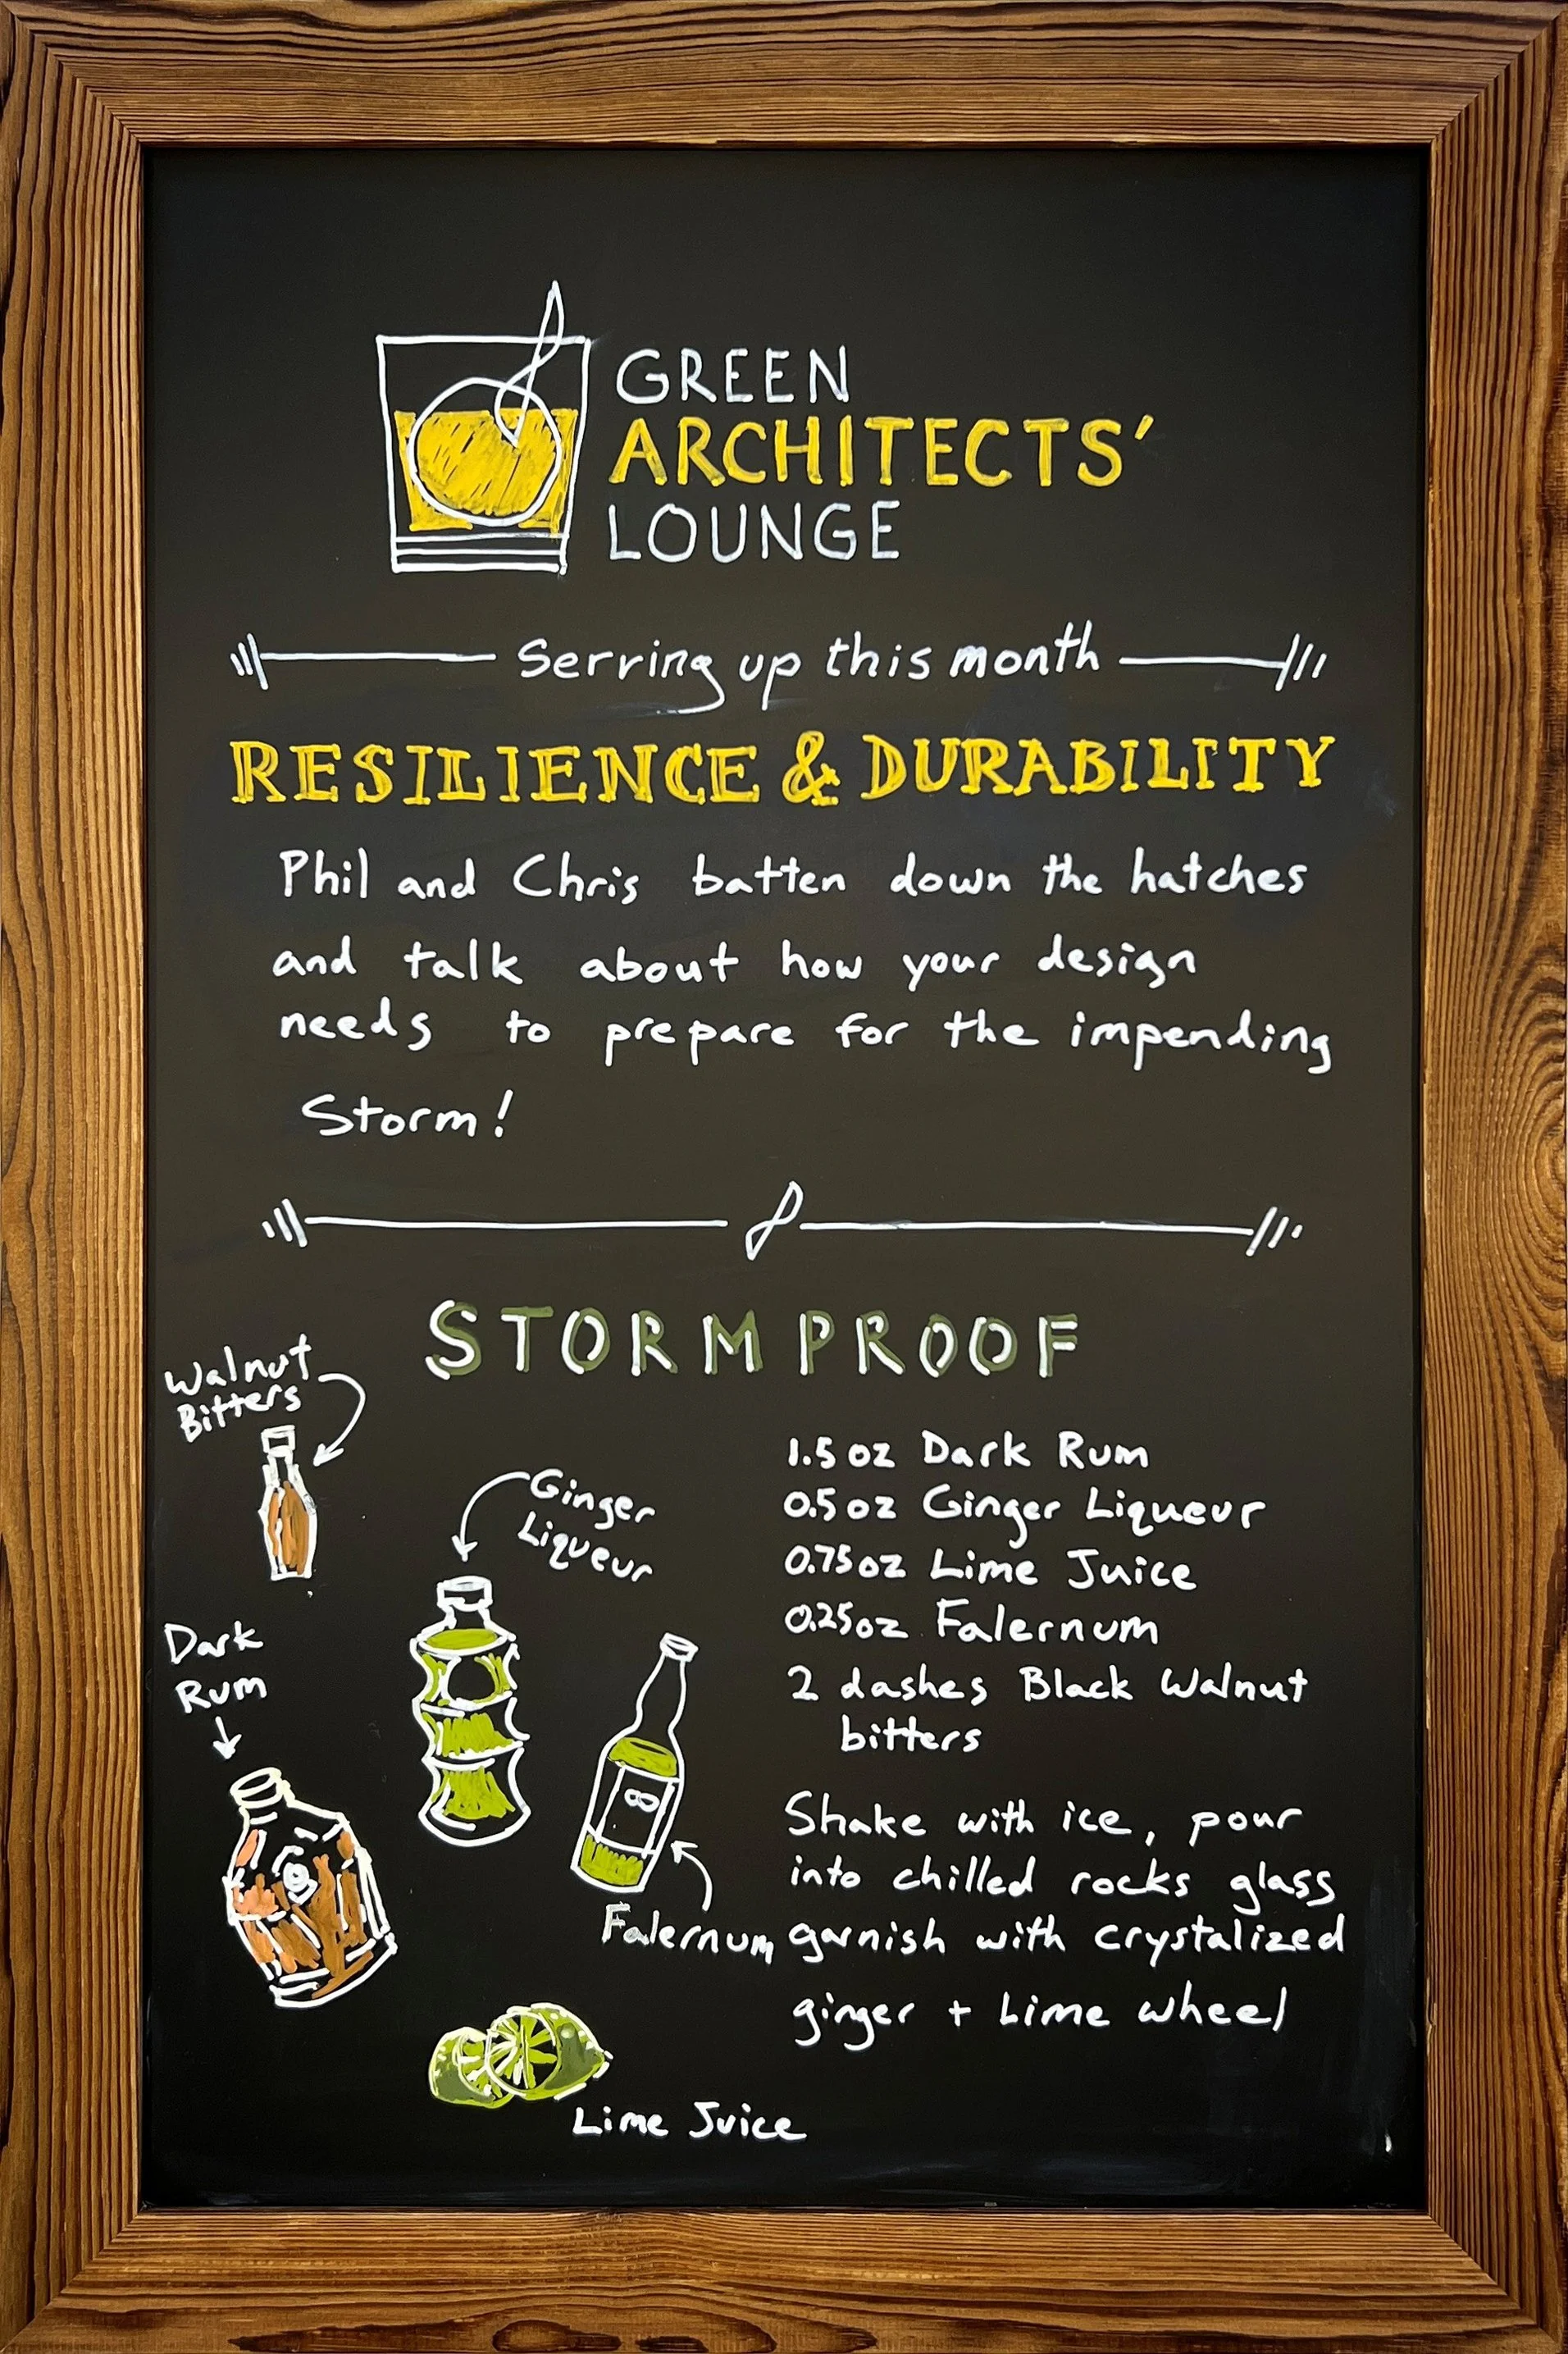 GREEN
ARCHITECTS'
LOUNGE
Serving up this month
RESILIENCE & DURABILITY
Phil and Chris batten down the hatches
and talk about how your design
needs to prepare for the impending
Storm!
STORMPROOF
Walnut
Bitters
Ginger
Liqueur
Dark
Rum
Falernum
Lime Juice
1.5 oz Dark Rum
0.5 oz Ginger Liqueur
0.75oz Lime Juice
0.25oz Falernum
2 dashes Black Walnut
bitters
Shake with ice, pour
into chilled rocks glass
garnish with crystalized
ginger + Lime wheel